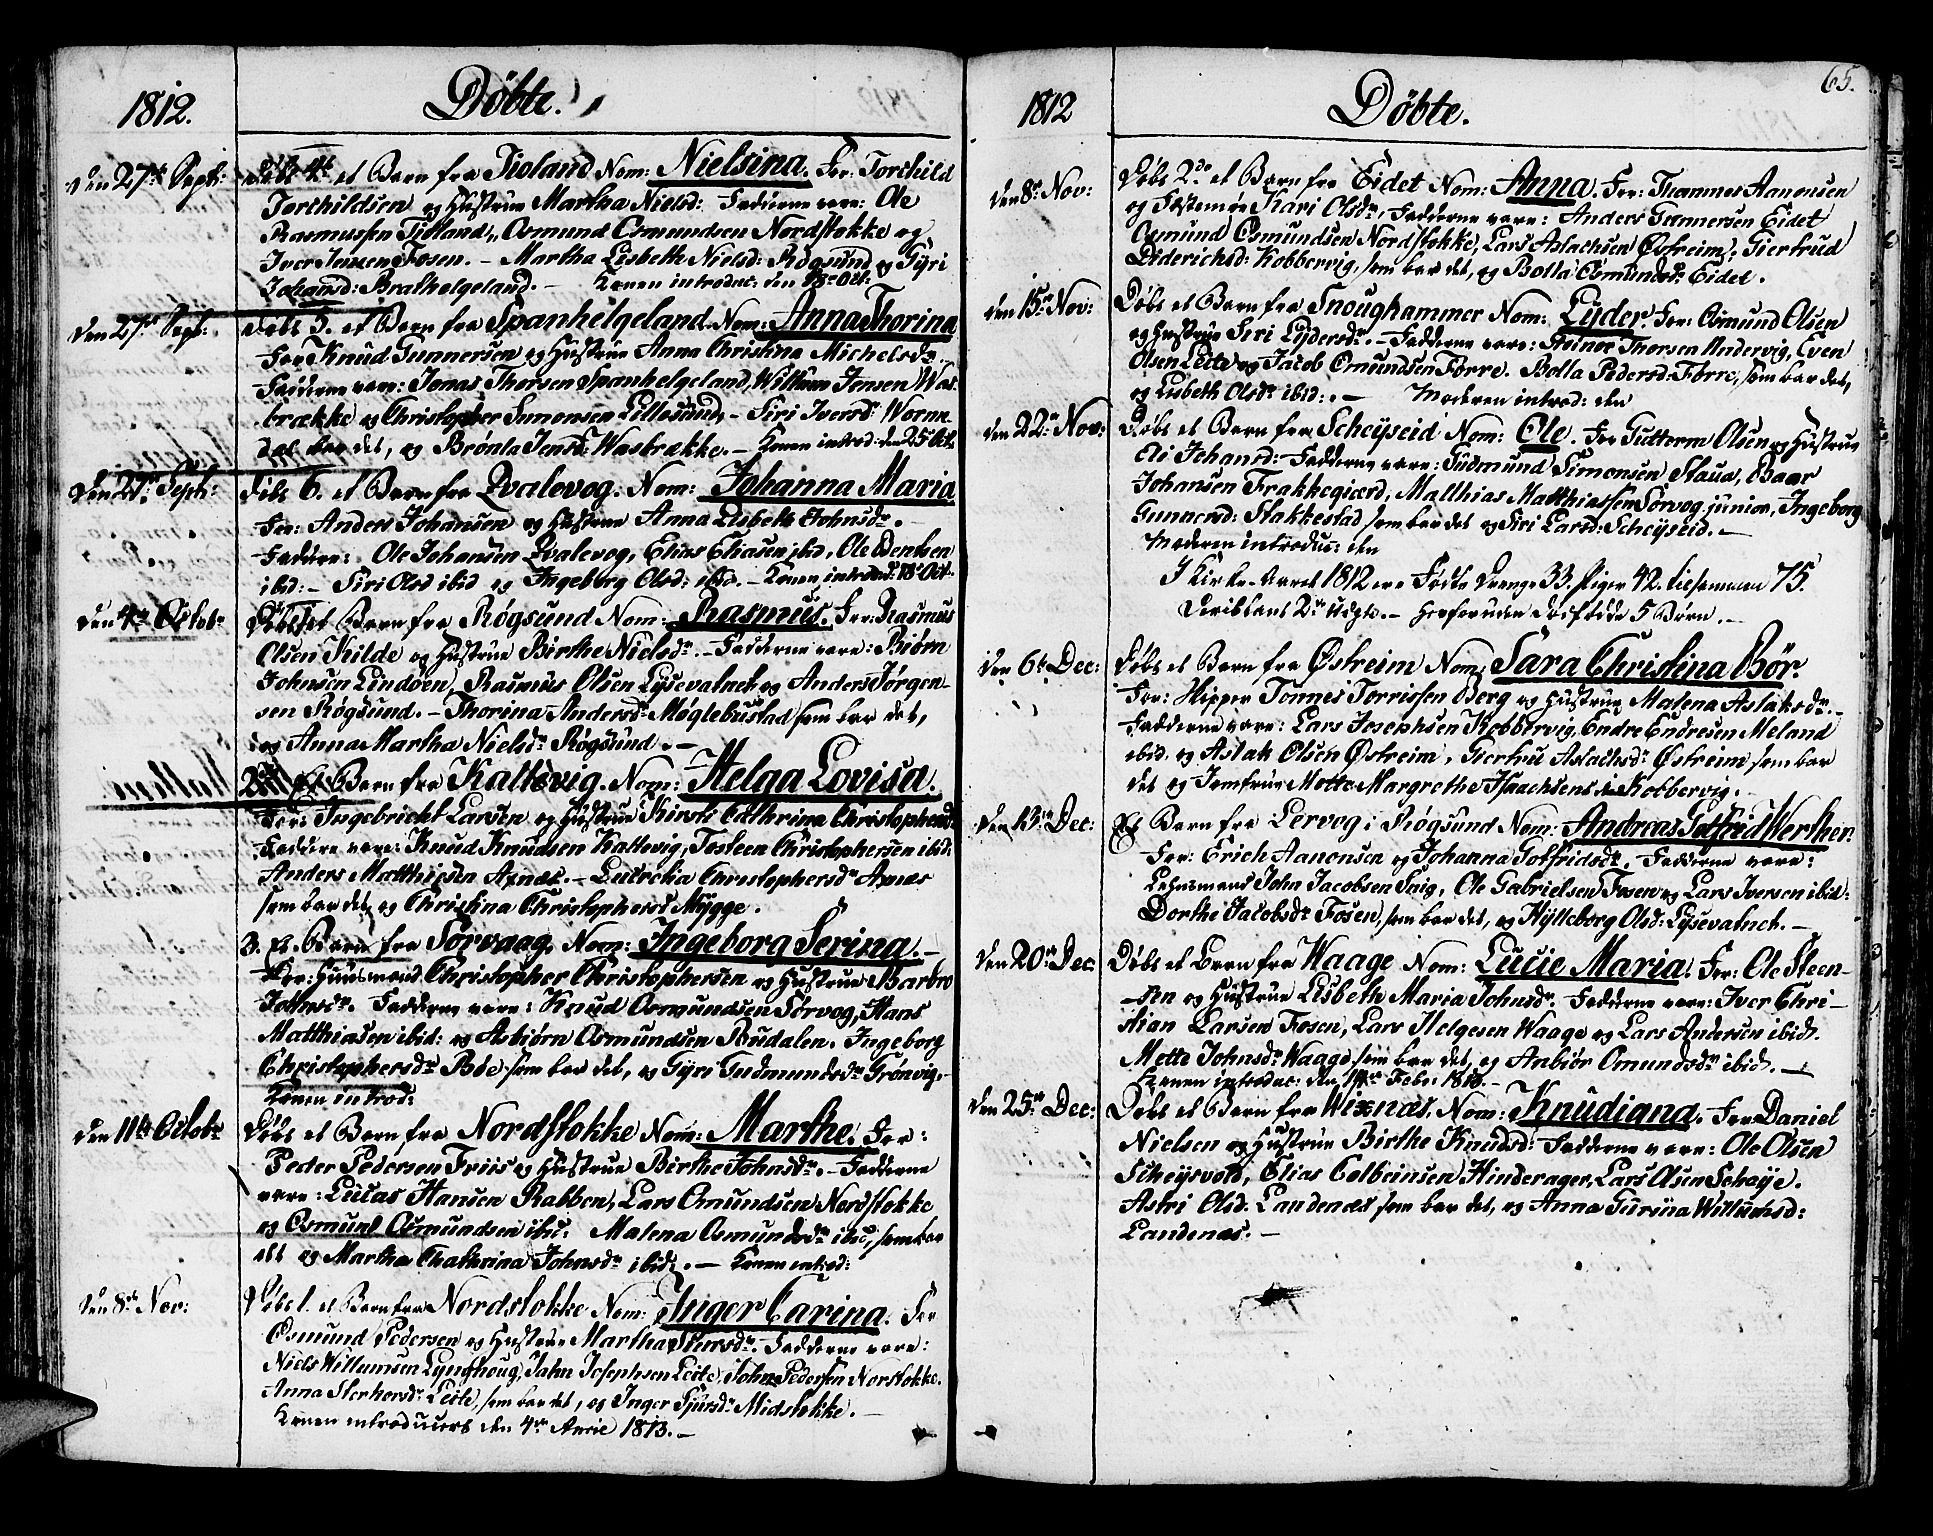 1812.
Döbte.
den 27de Sept:
Döbt 4de et Barn fra Tioland Nom: Nielsina. For: Torchild
Torchildsen og Hustrue Martha Nielsd: Fadderne vare: Ole
Rasmussen Tioland, Osmund Osmundsen Nordstokke og
Iver Jensen Fosen. – Martha Lisbeth Nielsd: Røgsund og Gyri
Johansd: Brathelgeland. – Konen introduc: den 18de Oct:
den 27de Sept:
Döbt 5. et Barn fra Spanhelgeland Nom: Anna Thorina
For Knud Gunnersen og Hustrue Anna Christina Michelsdr.
Fadderne vare: Jonas Thorsen Spanhelgeland, Willum Jensen Was-
brække og Christopher Simonsen Lillesund, – Siri Iversdr Worme-
dal bar det, og Brønla Jensd: Wasbrække. – Konen introd: den 25 Oct.
den 27de Sept:
Döbt 6. et Barn fra Qvalevog. Nom: Johanna Maria
For: Anders Johansen og Hustrue Anna Lisbeth Johnsdr. –
Faddere: Ole Johansen Qvalevog, Elias Eliasen ibid, Ole Bentsen
ibid: – Siri Olsd ibid og Ingeborg Olsd: ibid. – Konen introd: 18de Oct.
den 4de Octobr
Döbt et Barn fra Røgsund Nom: Rasmus. For: Rasmus
Olsen Kilde og Hustrue Birthe Nielsdr. – Fadderne vare: Biørn
Johnsen Lindöen, Rasmus Olsen Lysevatnet og Anders Jørgen-
sen Røgsund. – Thorina Andersdr Møglebustad som bar det,
og Anna Martha Nielsdr Røgsund. –
2det et Barn fra Kaltevig. Nom: Helga Lovisa.
For: Ingebricht Larsen og Hustrue Kirsti Cathrina Christophersdr
Faddere vare: Knud Knudsen Kaltevig, Tosteen Christophersen ibid:
Anders Matthiesen Axnæs. – Lucretia Christophersdr Axnæs
som bar det, og Christina Christophersd Mygge.
3. et Barn fra Sørvaag, Nom: Ingeborg Serina. –
For: Huusmand Christopher Christophersen og Hustrue Barbro
Johnsdr. Fadderne vare: Knud Osmundsen Sørvog, Hans
Matthiasen ibid: og Asbiørn Osmundsen Budalen. Ingeborg
Christophersdr Böe som bar det, og Gyri Gudmundsdr Grönvig. –
Konen introd:
den 11te Octobr
Döbt et Barn fra Nordstokke Nom: Marthe. For:
Peder Pedersen Friis og Hustrue Birthe Johnsdr. – Fadderne
vare: Lucas Hansen Rabben, Lars Osmundsen Nordstokke
og Osmund Osmundsen ibid: Malena Osmundsdr ibid, som bar
det og Martha Chathrina Johnsdr ibid. – Konen introd:
den 8de Nov:
Döbt 1. et Barn fra Nordstokke Nom: Inger Carina. For
Osmund Pedersen og Hustrue Martha Siursdr. Fadderne vare:
Niels Willumsen Lynghoug, Jahn Josephsen Leite, John Pedersen Norstokke.
Anna Storkorsdr Leite, som bar det, og Inger Siursdr Midstokke. –
Konen introduceret den 4de April 1813. –
65.
1812
Döbte.
den 8de Nov:
Döbt 2de et Barn fra Eidet Nom: Anna. For: Thommes Aanonsen
og Festemöe Kari Olsdr, Fadderne vare: Anders Gunnersen Eidet
Osmund Osmundsen Nordstokke, Lars Aslachsen Østreim, Giertrud
Diderichsd: Kobbervig, som bar det, og Bolla Osmundsdr Eidet.
den 15de Nov:
Döbt et Barn fra Snoughammer Nom: Lyder. For: Osmund Olsen
og Hustrue Siri Lydersdr. – Fadderne vare: Halvor Thorsen Andervig, Even
Olsen Leite og Jacob Osmundsen Førre. Bolla Pedersd: Førre, som bar det,
og Lisbeth Olsdr ibid:. – Moderen introd: den
den 22de Nov:
Döbt et Barn fra Scheyseid Nom: Ole. For Gutterm Olsen og Hustrue
Eli Johansd: Fadderne vare: Gudmund Simonsen Staua, Baar
Johansen Frakkegierd, Matthias Matthiassen Sørvog junior, Ingeborg
Gunnersd: Stakkestad som bar det og Siri Larsd: Scheyseid. –
Moderen introduc: den
I Kirke-Aaret 1812 ere Fødte Drenge 33, Piger 42. tilsammen 75.
Deriblant 2de uægte. – Herforuden Dødfødde 5 Børn. –
den 6te Dec:
Döbt et Barn fra Østreim Nom: Sara Christina Bør.
For: Skipper Tonnes Torrissen Berg og Hustrue Malena Aslaksdr. –
Fadderne vare: Lars Josephsen Kobbervig, Endre Endresen Meland
ibid. og Aslak Olsen Østreim, Giertru Aslachsdr Østreim som bar
det og Jomfrue Mette Margrethe Isaachsens i Kobbervig.
den 13de Dec:
Et Barn fra Lervog i Røgsund Nom: Andreas Gotfried Werther.
For: Erich Aanonsen og Johanna Gotfridsdr. Fadderne vare:
Lehnsmand John Jacobsen Snig, Ole Gabrielsen Fosen og Lars Iversen ibid:
Dorthe Jacobsdr Fosen, som bar det, og Hylleborg Olsd: Lysevatnet. –
den 20de Dec:
Döbt et Barn fra Waage Nom: Lucie Maria. For: Ole Steen-
sen og Hustrue Lisbeth Maria Johnsdr. Fadderne vare: Iver Chri-
stian Larsen Fosen, Lars Helgesen Waage og Lars Andersen ibid.
Mette Johnsdr Waage som bar det, og Anbiør Omundsdr ibid. –
Konen introduc: den 14de Febr: 1813. –
den 25de Dec:
Döbt et Barn fra Wixnæs. Nom: Knudiana. For Daniel
Nielsen og Hustrue Birthe Knudsd: Fadderne vare: Ole Olsen
Scheysvold, Elias Colbeinsen Hinderager, Lars Olsen Scheije.
Astri Olsd: Landenæs som bar det, og Anna Gurina Willumsd:
Landenæs. –